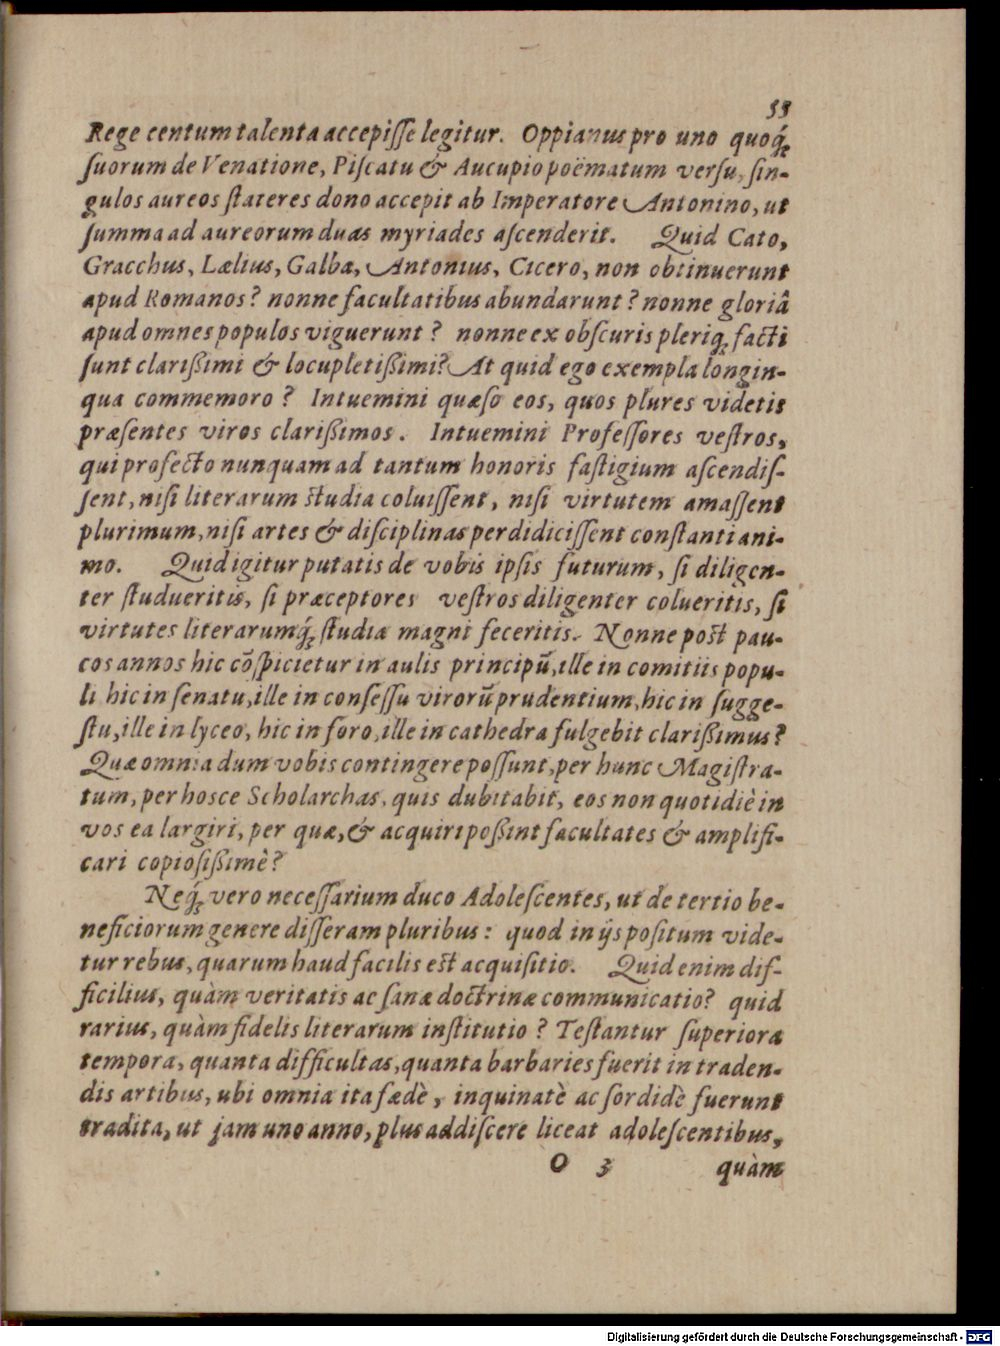 53
Rege centum talenta accepiſſe legitur. Oppianus pro uno quoq́;
ſuorum de Venatione, Piſcatu & Aucupio poëmatum verſu, ſin-
gulos aureos ſtateres dono accepit ab Imperatore Antonino, ut
ſumma ad aureorum duas myriades aſcenderit. Quid Cato,
Gracchus, Lælius, Galba, Antonius, Cicero, non obtinuerunt
apud Romanos? nonne facultatibus abundarunt? nonne gloriâ
apud omnes populos viguerunt? nonne ex obſcuris pleriq; facti
ſunt clarißimi & locupletißimi? At quid ego exempla longin-
qua commemoro? Intuemini quæſo eos, quos plures videtis
præſentes viros clarißimos. Intuemini Profeſſores veſtros,
qui profecto nunquam ad tantum honoris faſtigium aſcendiſ-
ſent, niſi literarum ſtudia coluiſſent, niſi virtutem amaſſent
plurimum, niſi artes & diſciplinas perdidiciſſent conſtanti ani-
mo. Quid igitur putatis de vobis ipſis futurum, ſi diligen-
ter ſtudueritis, ſi præceptores veſtros diligenter colueritis, ſi
virtutes literarumq́; ſtudia magni feceritis. Nonne poſt pau-
cos annos hic cõſpicietur in aulis principũ, ille in comitiis popu-
li hic in ſenatu, ille in conſeſſu virorũ prudentium, hic in ſugge-
ſtu, ille in lyceo, hic in foro, ille in cathedra fulgebit clarißimus?
Quæ omnia dum vobis contingere poſſunt, per hunc Magiſtra-
tum, per hosce Scholarchas, quis dubitabit, eos non quotidiè in
vos ea largiri, per quæ, & acquiri poßint facultates & amplifi-
cari copioſißimè?
Neq́; vero neceſſarium duco Adoleſcentes, ut de tertio be-
neficiorum genere diſſeram pluribus: quod in ijs poſitum vide-
tur rebus, quarum haud facilis eſt acquiſitio. Quid enim dif-
ficilius, quàm veritatis ac ſanæ doctrinæ communicatio? quid
rarius, quàm fidelis literarum inſtitutio? Teſtantur ſuperiora
tempora, quanta difficultas, quanta barbaries fuerit in traden-
dis artibus, ubi omnia ita fœdè, inquinatè ac ſordidè fuerunt
tradita, ut jam uno anno, plus addiſcere liceat adoleſcentibus,
O 3 quàm
Digitalisierung gefördert durch die Deutsche Forschungsgemeinschaft - DFG